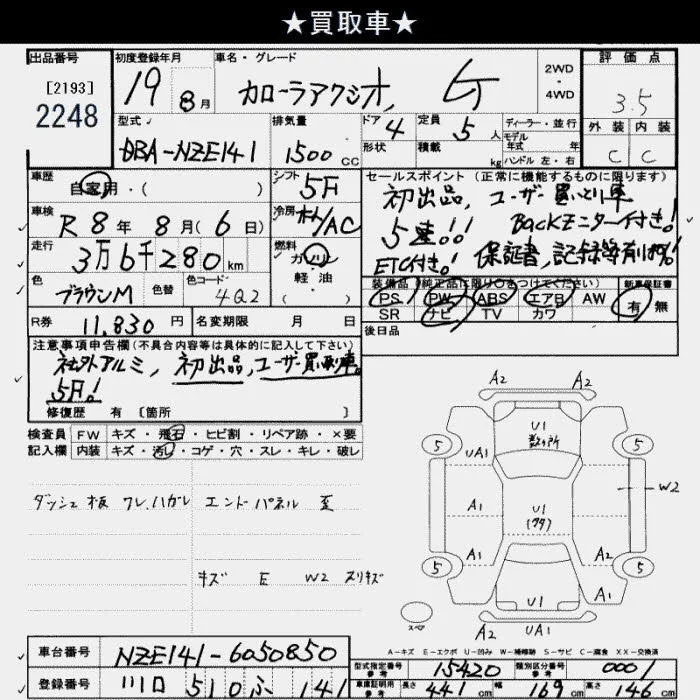 ★買取車★
出品番号 初度登録年月 車名・グレード 評価点
[2193]
2248
19 8月 カローラアクシオ, 2WD・4WD 3.5
型式 排気量 ドア 定員 ディーラー・並行 外装 内装
DBA-NZE141 1500CC 4 5人 モデル年式 年式 C C
形状 積載 kg ハンドル 左・右
車歴 シフト セールスポイント(正常に機能するものに限ります)
自家用・( ) 5F 初出品, ユーザー買いとり車
車検 R8年8月(6日) 冷房 /AC 5速!! BACKモニター付き!
走行 3万6千280km 燃料 ガソリン・軽油 ETC付き! 保証書,記録等有り
色 ブラウンM 色替 色コード 4Q2 装備品(純正品に限り○をつけてください) 新車保証書
PS PW ABS エアB AW 有・無
SR ナビ TV カワ
R券 11,830円 名変期限 月 日 後日品
注意事項申告欄(不具合内容等は具体的に記入して下さい)
社外アルミ, 初出品, ユーザー買取り車。
5F!
修復歴 有 [箇所 ]
検査員 FW キズ・飛石・ヒビ割・リペア跡・×要
記入欄 内装 キズ・汚れ・コゲ・穴・スレ・キレ・破レ
ダッシュ板 ワレ,ハガレ エンドパネル 歪
キズ E W2 スリキズ
A2 A2
U1
数ヶ所
5 5
UA1
W2
A1 U1
(フタ)
A1 A2
5 5
U1 A1
スペア
A2 UA1
A-キズ E-エクボ U-凹み W-補修跡 S-サビ C-腐食 XX-交換済
車台番号 NZE141-6050850
型式指定番号 参考 15420 類別区分番号 参考 0001
登録番号 川口 510 ふ 141
車庫証明用 参考 長さ 441cm 幅 169cm 高さ 146cm